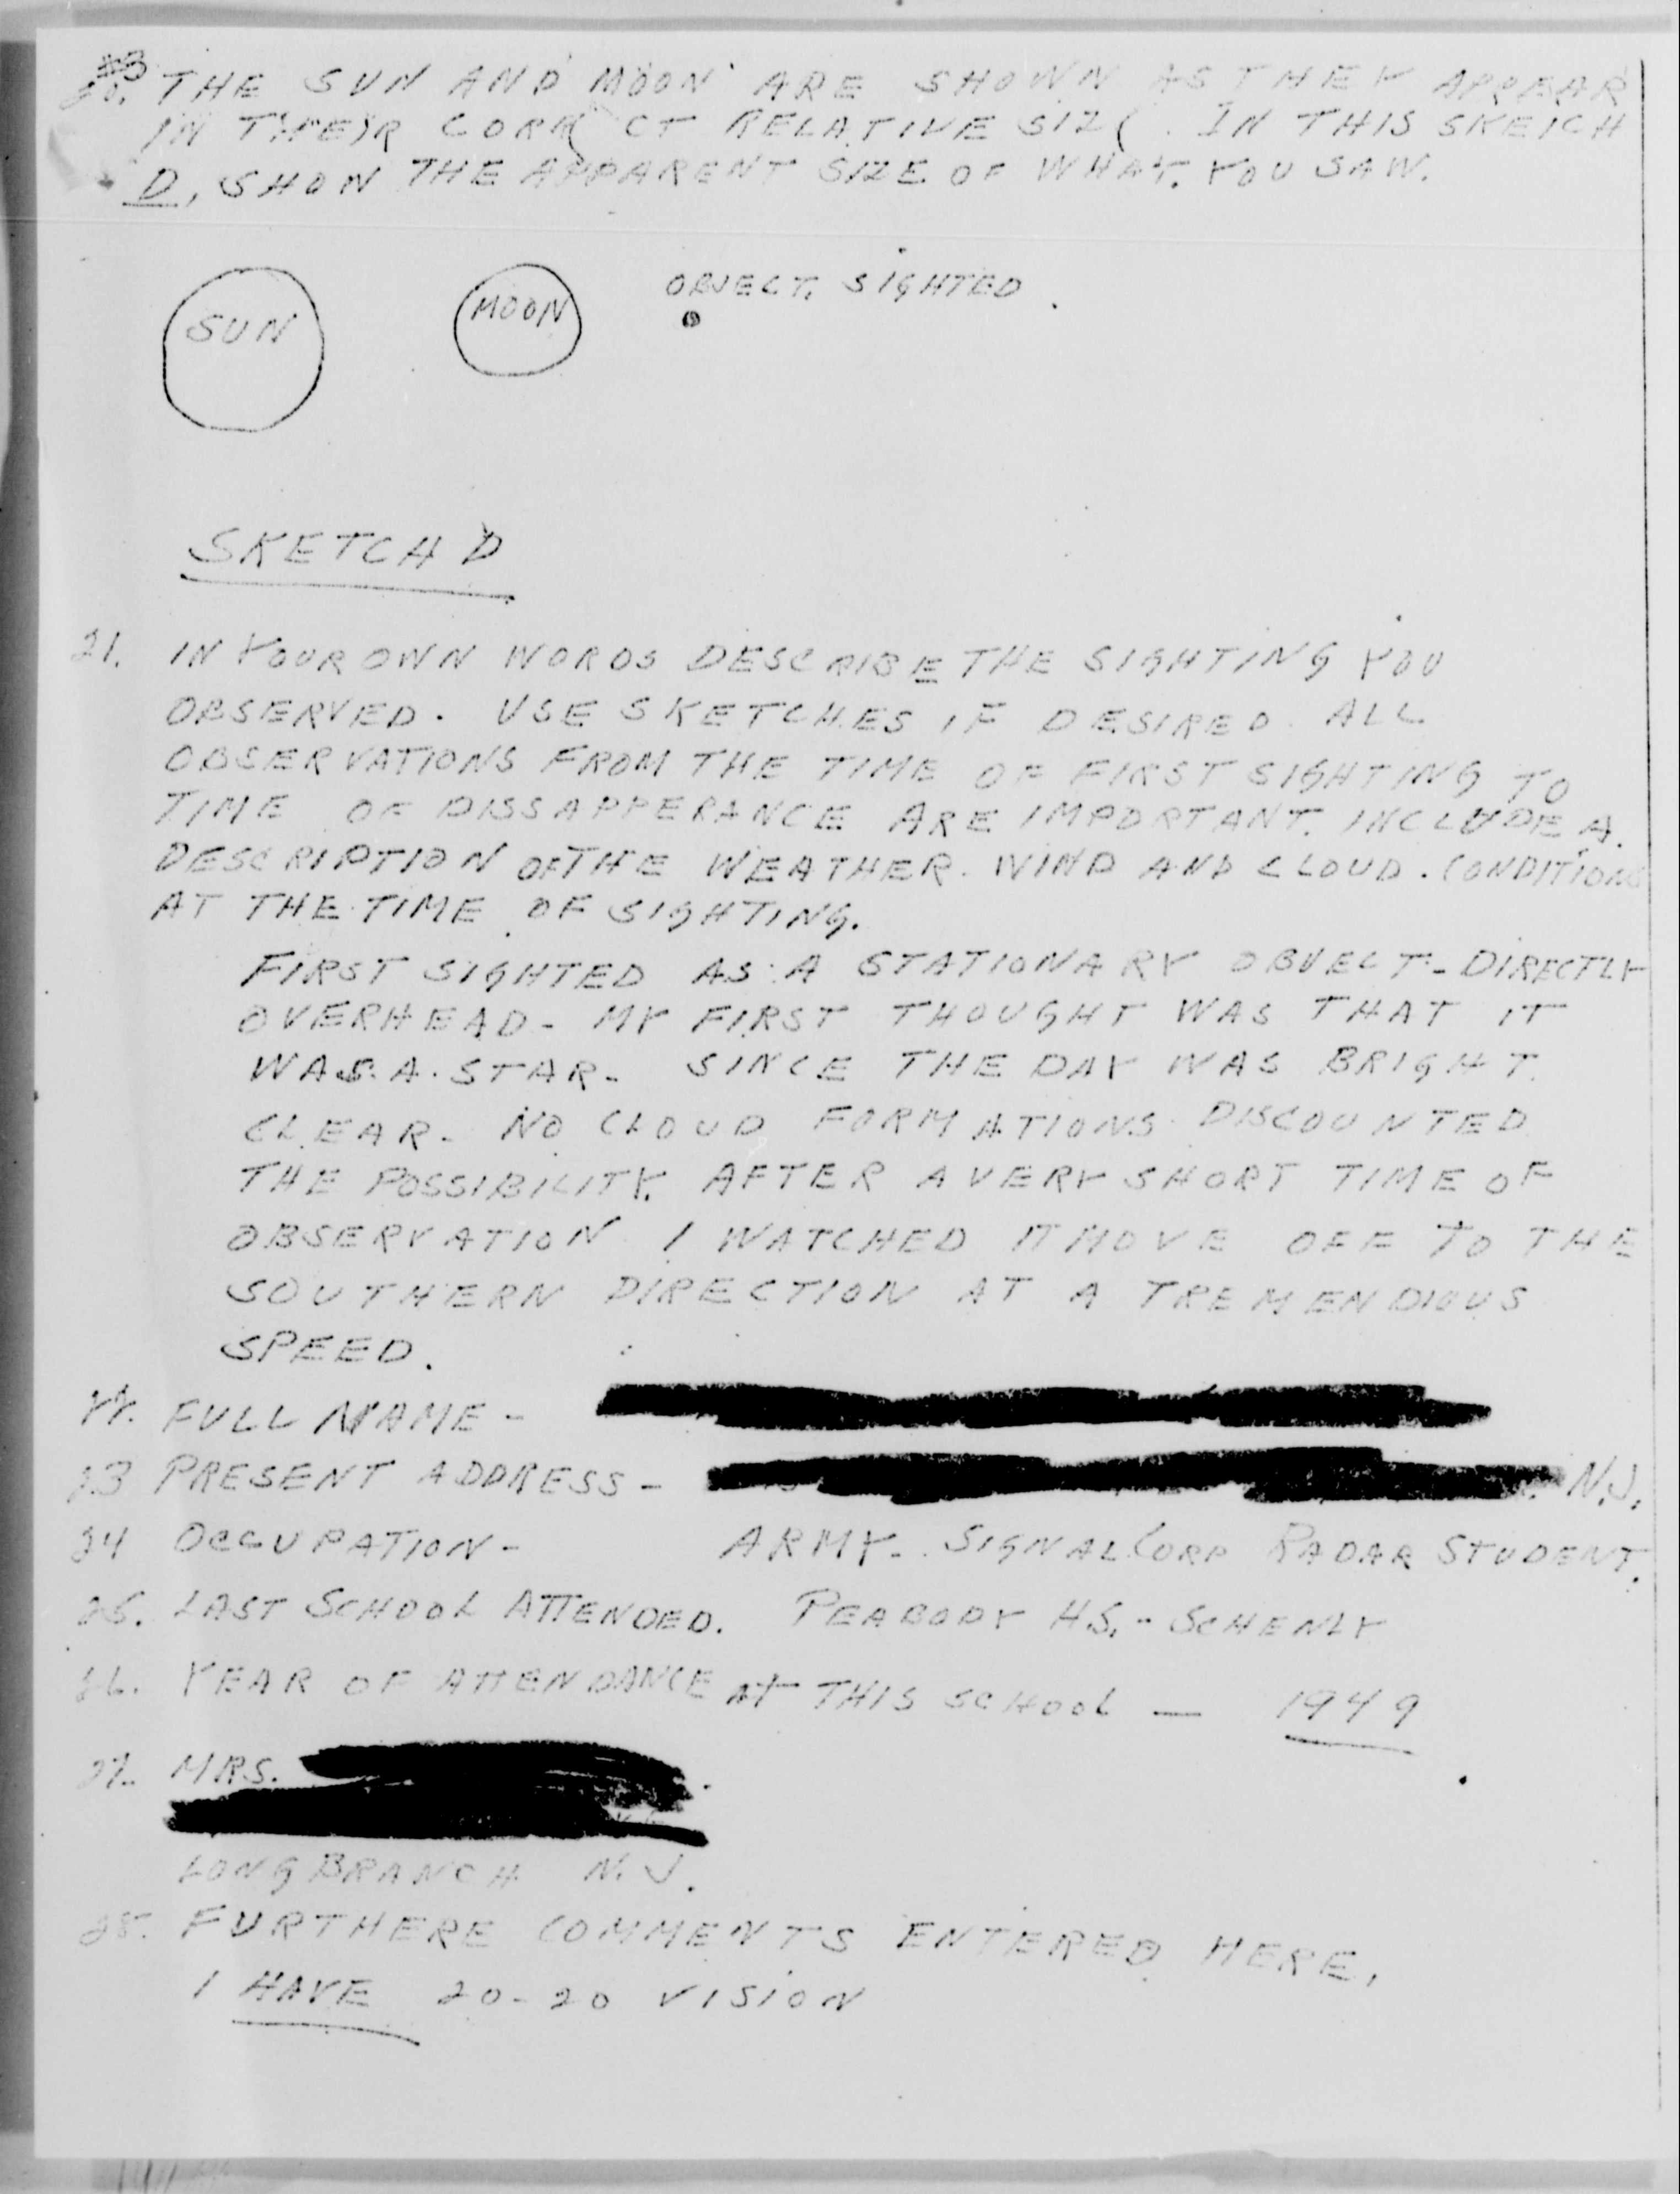 #3
20. THE SUN AND MOON ARE SHOWN AS THEY APPEAR
IN THEIR CORRECT RELATIVE SIZE. IN THIS SKEICH
D, SHOW THE APPARENT SIZE OF WHAT. YOU SAW.
SUN MOON OBJECT. SIGHTED.
SKETCH D
21. IN YOUR OWN WORDS DESCRIBE THE SIGHTING YOU
OBSERVED. USE SKETCHES IF DESIRED. ALL
OBSERVATIONS FROM THE TIME OF FIRST SIGHTING TO
TIME OF DISSAPPERANCE ARE IMPORTANT. INCLUDE A
DESCRIPTION OF THE WEATHER. WIND AND CLOUD. CONDITIONS
AT THE TIME OF SIGHTING.
FIRST SIGHTED AS A STATIONARY OBJECT - DIRECTLY
OVERHEAD - MY FIRST THOUGHT WAS THAT IT
WAS A STAR - SINCE THE DAY WAS BRIGHT
CLEAR - NO CLOUD FORMATIONS DISCOUNTED
THE POSSIBILITY. AFTER A VERY SHORT TIME OF
OBSERVATION I WATCHED IT MOVE OFF TO THE
SOUTHERN DIRECTION AT A TREMENDIOUS
SPEED.
22. FULL NAME -
23 PRESENT ADDRESS - N.J.
24 OCCUPATION - ARMY - SIGNAL CORP RADAR STUDENT.
25. LAST SCHOOL ATTENDED. PEABODY H.S. - SCHENLY
26. YEAR OF ATTENDANCE AT THIS SCHOOL — 1949
27. MRS.
LONG BRANCH N.J.
28. FURTHERE COMMENTS ENTERED HERE,
I HAVE 20-20 VISION